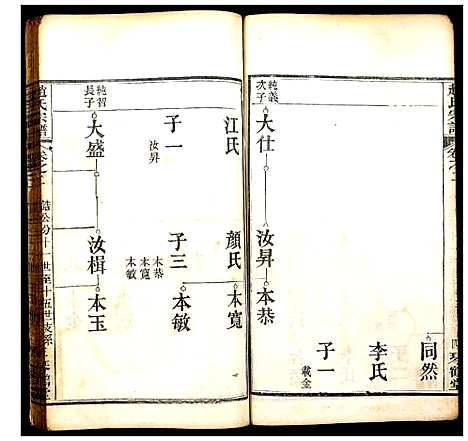 趙氏宗譜
純義次子
大仕
汝昇
本恭
同然
李氏
子一
載金
江氏
顏氏
本寬
子一
汝昇
子三
本恭
本寬
本敏
本敏
純習長子
大盛
汝楫
本玉
趙氏宗譜